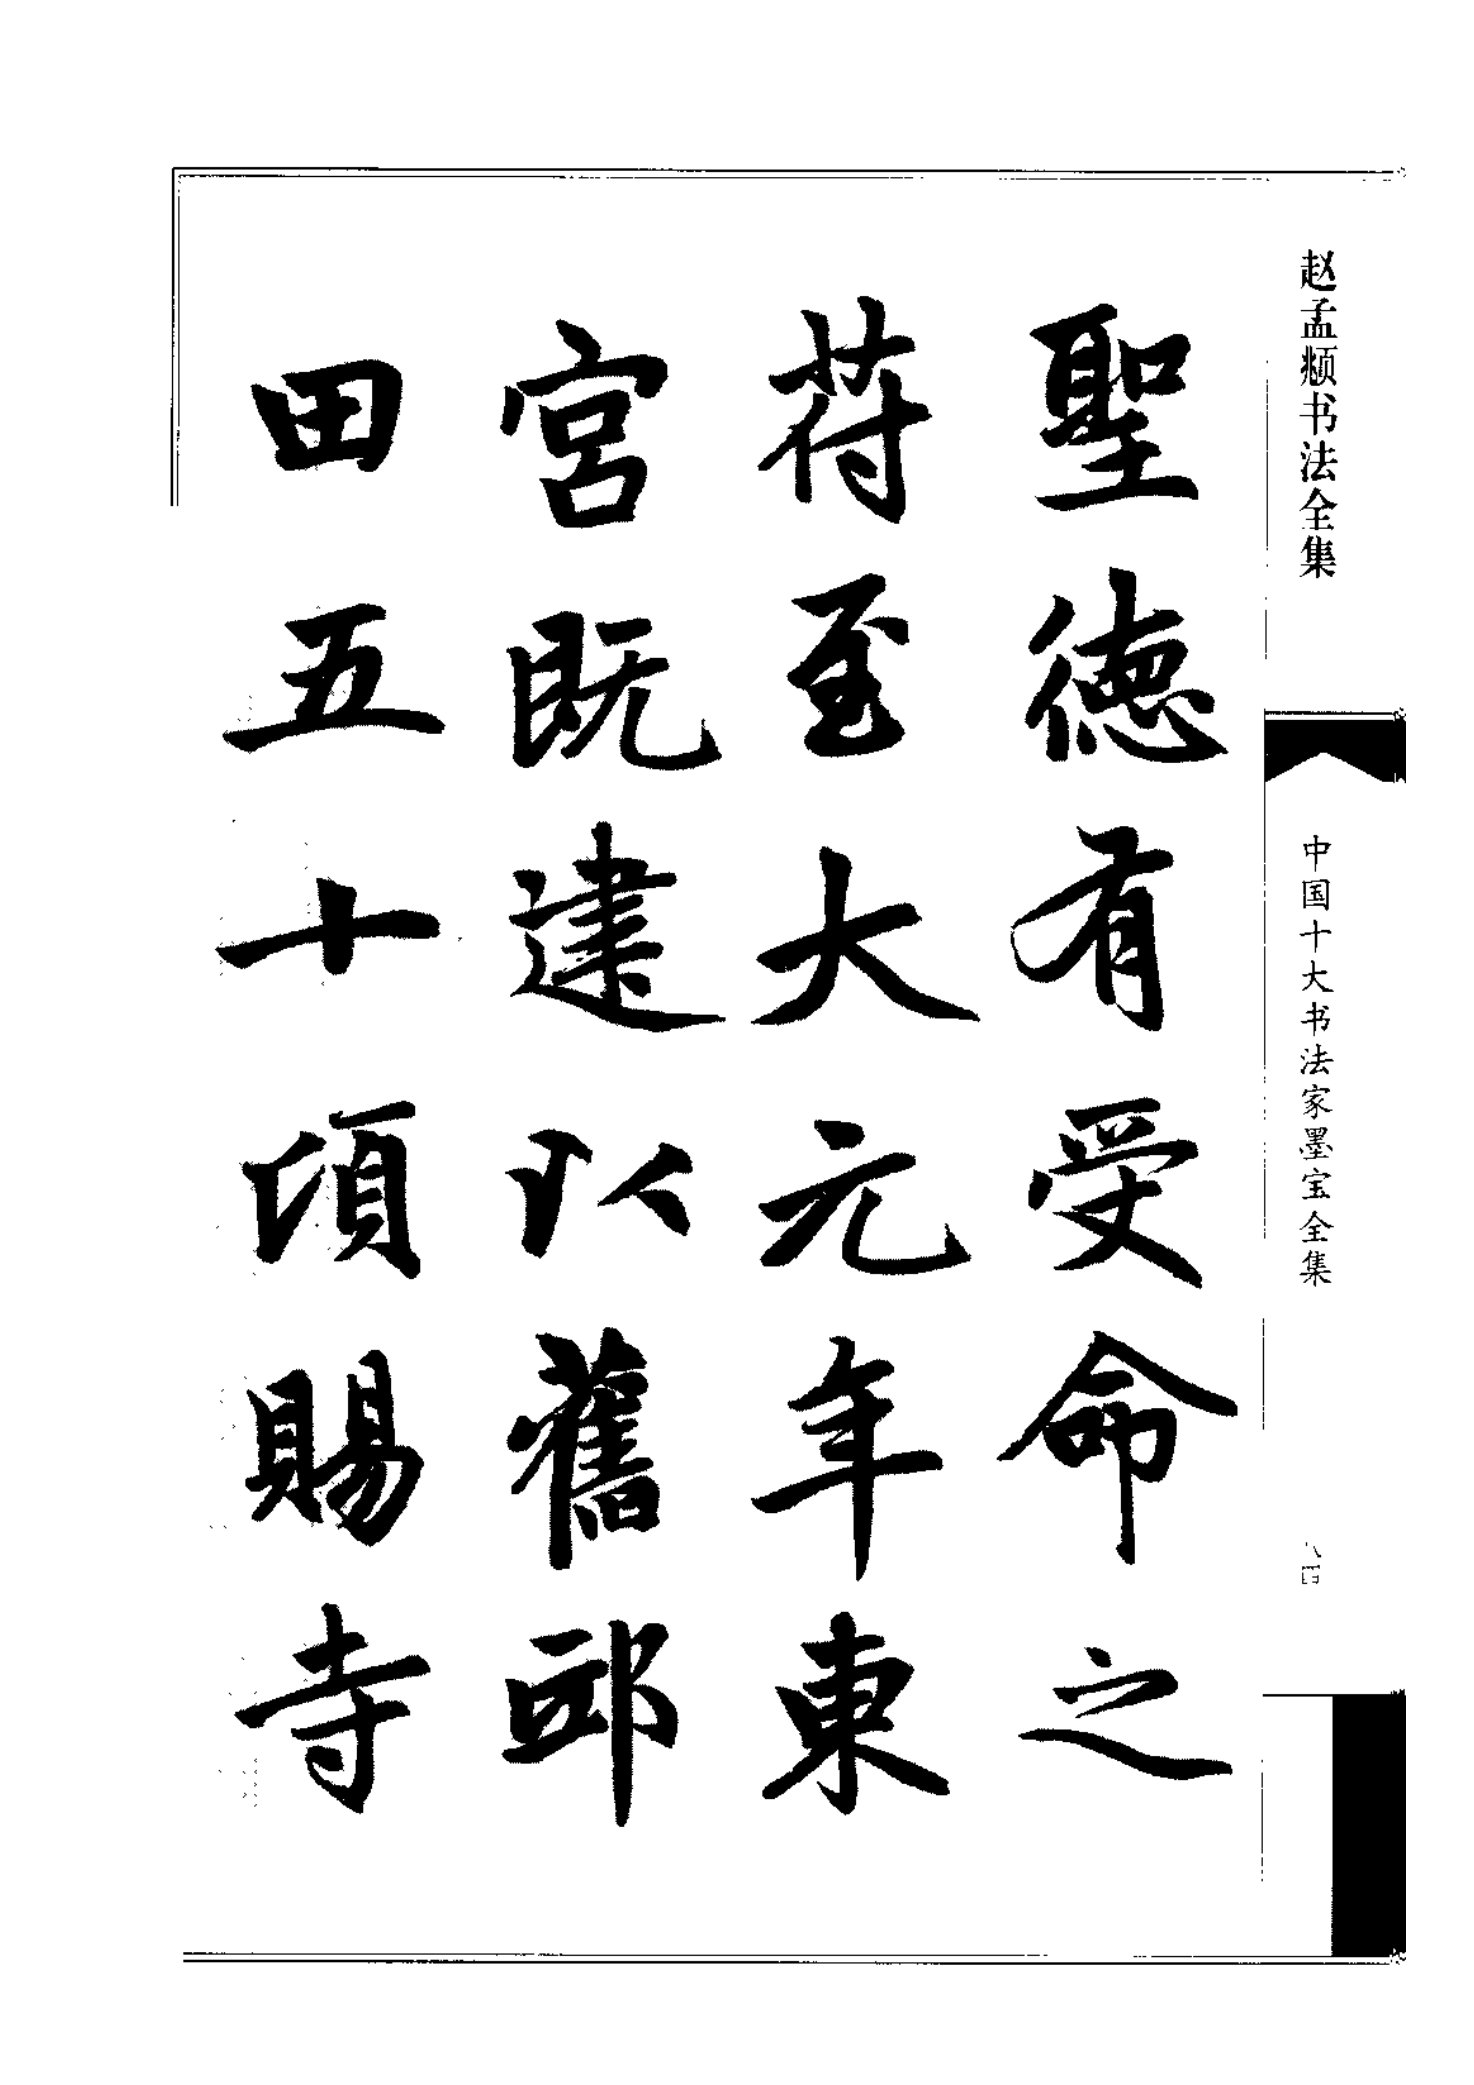 赵孟𫖯书法全集
中国十大书法家墨宝全集
八四
聖徳有受命之
苻至大元年東
宮既建以舊邸
田五十頃賜寺